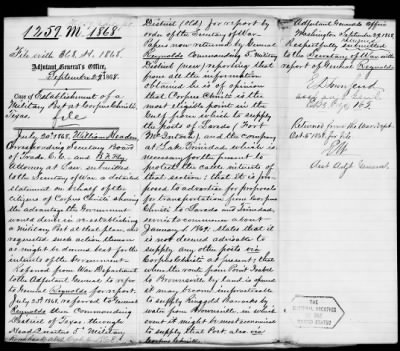 1259 M 1868
File with Oct. H. 1868.
Adjutant General's Office,
September 29 1868.
Case of Establishment of a
Military Post at Corpus Christi,
Texas.
file
July 20th 1868. William Headen
Corresponding Secretary Board
of Trade C.C. and
Attorney at Law submitted
to the Secretary of War a detailed
statement on behalf of the
citizens of Corpus Christi showing
the advantage the Government
would derive in re establishing
a Military Post at that place, and
requested such action thereon
as might be deemed best for the
interests of the Government.
Referred from War Department
to the Adjutant General to refer
to General Reynolds for report.
July 25th 1868. referred to General
Reynolds then Commanding
District of Texas through
Head Quarters 5th Military
District (old) for report by
order of the Secretary of War
Papers now returned by General
Reynolds Commanding 5th Military
District (new) reporting that
from all the information
obtained he is of opinion
that Corpus Christi is the
most eligible point in the
Gulf from which to supply
the posts of Laredo (Fort
McIntosh), and the company
at Lake Trinidad which is
necessary for the present to
protect the cattle interests of
that section; that it is pro-
posed to advertise for proposals
for transportation from Corpus
Christi to Laredo and Trinidad,
service to commence about
January 1 1869; states that it
is not deemed advisable to
supply any other posts via
Corpus Christi at present; that
when the route from Point Isabel
to Brownsville by land is opened
it may become impracticable
to supply Ringgold Barracks by
water from Brownsville, in which
event it might be most economical
to supply that Post also via
Corpus Christi.
Adjutant General's Office
Washington September 29, 1868
Respectfully submitted
to the Secretary of War with
report of General Reynolds.
E.D. Townsend
Asst. Adjt. General
Returned from War Dept.
Oct 5 1868 for file.
Asst Adjt General
THE
NATIONAL ARCHIVES
OF THE
UNITED STATES